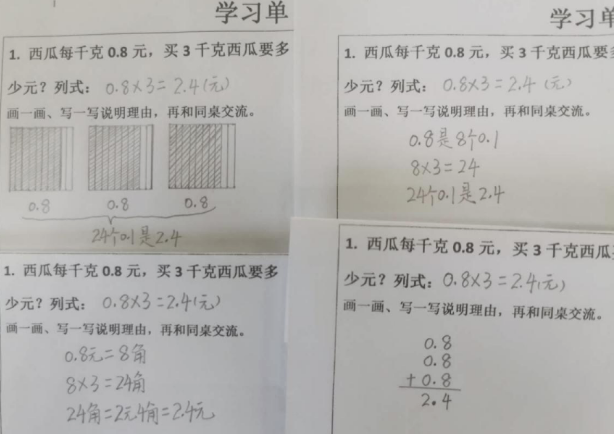 学习单
1. 西瓜每千克 0.8 元，买 3 千克西瓜要多
少元？列式：0.8×3=2.4(元)
画一画、写一写说明理由，再和同桌交流。
0.8 0.8 0.8
24个0.1是2.4
学习单
1. 西瓜每千克 0.8 元，买 3 千克西瓜要
少元？列式：0.8×3=2.4(元)
画一画、写一写说明理由，再和同桌交流。
0.8是8个0.1
8×3=24
24个0.1是2.4
1. 西瓜每千克 0.8 元，买 3 千克西瓜要多
少元？列式：0.8×3=2.4(元)
画一画、写一写说明理由，再和同桌交流。
0.8元=8角
8×3=24角
24角=2元4角=2.4元
1. 西瓜每千克 0.8 元，买 3 千克西瓜
少元？列式：0.8×3=2.4(元)
画一画、写一写说明理由，再和同桌交流。
0.8
0.8
+0.8
2.4